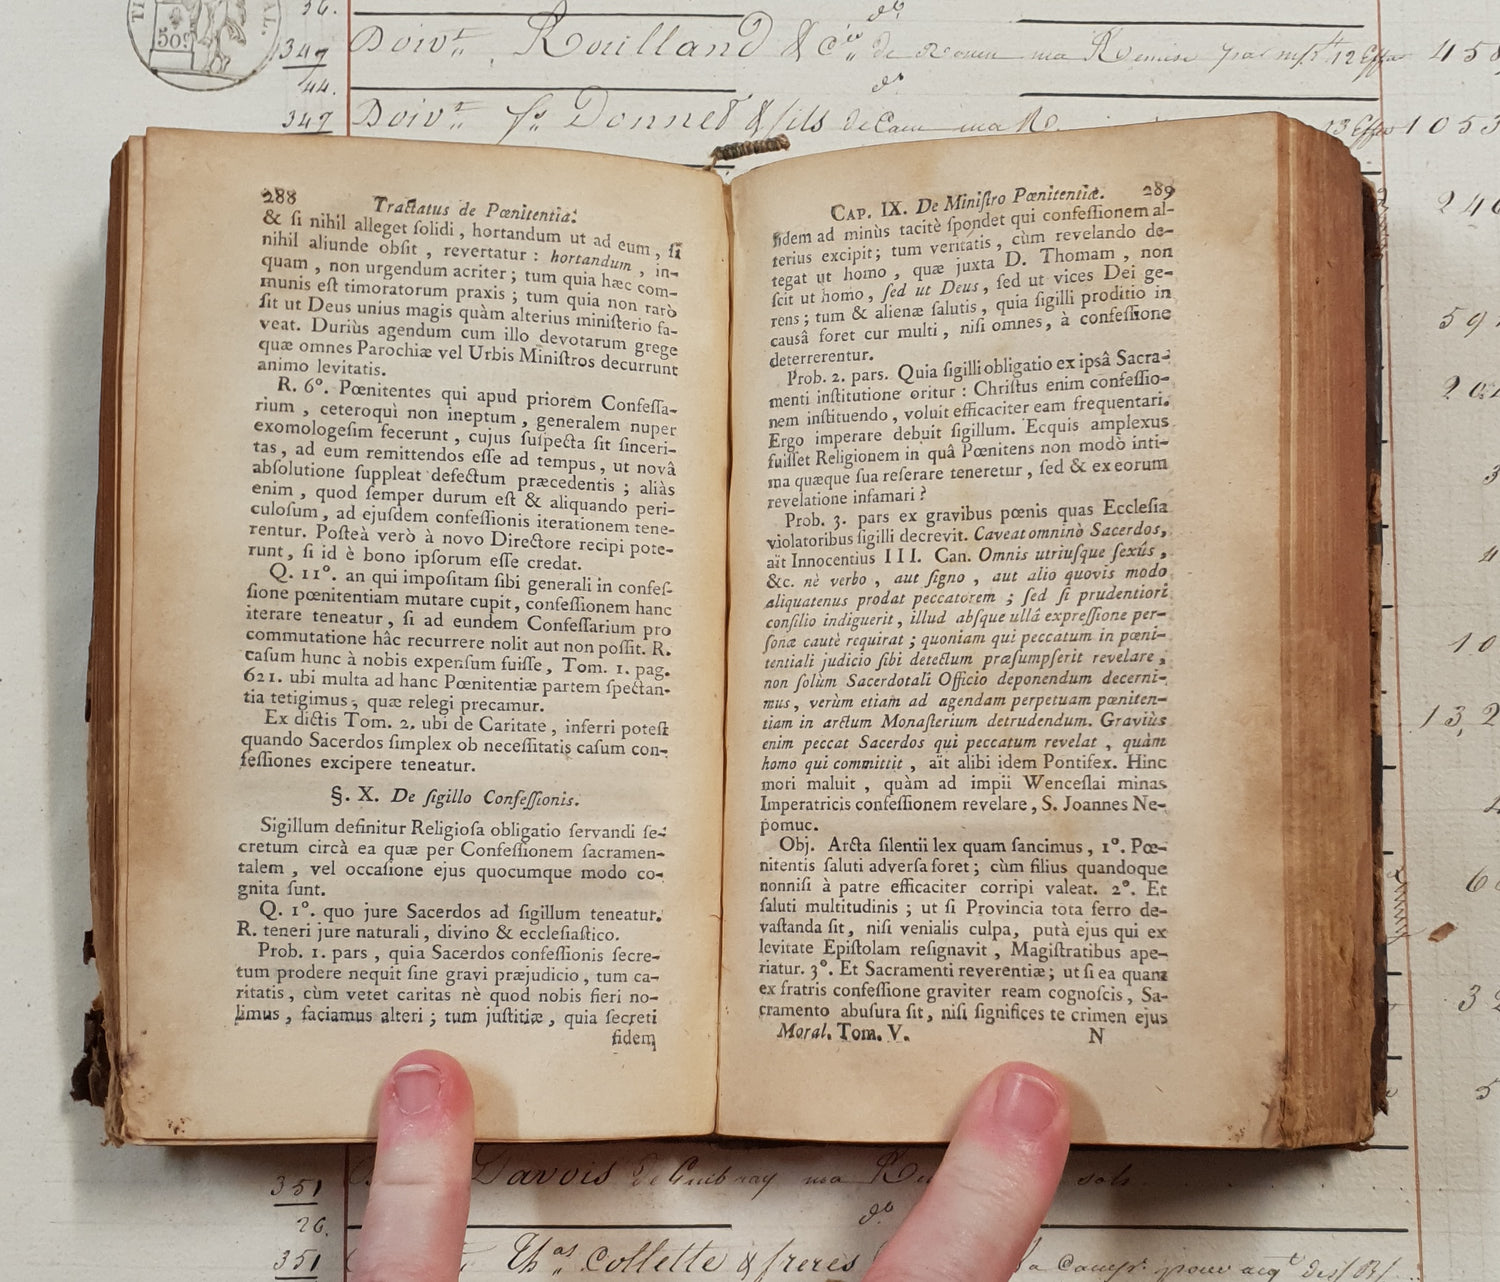 36.
509
347
Doiv.t Rouilland & C.ie de Rouen ma Remise 12 Eff
44.
347
Doiv.t Donnet & fils de Caen ma R.
13 1053
288 Tractatus de Pœnitentia.
& ſi nihil alleget ſolidi, hortandum ut ad eum, ſi
nihil aliunde obſit, revertatur : hortandum, in-
quam, non urgendum acriter; tum quia hæc com-
munis eſt timoratorum praxis; tum quia non rarò
fit ut Deus unius magis quàm alterius miniſterio fa-
veat. Duriùs agendum cum illo devotarum grege
quæ omnes Parochiæ vel Urbis Miniſtros decurrunt
animo levitatis.
R. 6°. Pœnitentes qui apud priorem Confeſſa-
rium, ceteroquì non ineptum, generalem nuper
exomologeſim fecerunt, cujus ſuſpecta ſit ſinceri-
tas, ad eum remittendos eſſe ad tempus, ut novâ
abſolutione ſuppleat defectum præcedentis; aliàs
enim, quod ſemper durum eſt & aliquando peri-
culoſum, ad ejuſdem confeſſionis iterationem tene-
rentur. Poſteà verò à novo Directore recipi pote-
runt, ſi id è bono ipſorum eſſe credat.
Q. 11°. an qui impoſitam ſibi generali in confeſ-
ſione pœnitentiam mutare cupit, confeſſionem hanc
iterare teneatur, ſi ad eundem Confeſſarium pro
commutatione hâc recurrere nolit aut non poſſit. R.
caſum hunc à nobis expenſum fuiſſe, Tom. 1. pag.
621. ubi multa ad hanc Pœnitentiæ partem ſpectan-
tia tetigimus, quæ relegi precamur.
Ex dictis Tom. 2. ubi de Caritate, inferri poteſt
quando Sacerdos ſimplex ob neceſſitatis caſum con-
feſſiones excipere teneatur.
§. X. De ſigillo Confeſſionis.
Sigillum definitur Religioſa obligatio ſervandi ſe-
cretum circà ea quæ per Confeſſionem ſacramen-
talem, vel occaſione ejus quocumque modo co-
gnita ſunt.
Q. 1°. quo jure Sacerdos ad ſigillum teneatur.
R. teneri jure naturali, divino & eccleſiaſtico.
Prob. 1. pars, quia Sacerdos confeſſionis ſecre-
tum prodere nequit ſine gravi præjudicio, tum ca-
ritatis, cùm vetet caritas nè quod nobis fieri no-
limus, faciamus alteri; tum juſtitiæ, quia ſecreti
fidem
CAP. IX. De Miniſtro Pœnitentiæ. 289
fidem ad minùs tacitè ſpondet qui confeſſionem al-
terius excipit; tum veritatis, cùm revelando de-
tegat ut homo, quæ juxta D. Thomam, non
ſcit ut homo, ſed ut Deus, ſed ut vices Dei ge-
rens; tum & alienæ ſalutis, quia ſigilli proditio in
causâ foret cur multi, niſi omnes, à confeſſione
deterrerentur.
Prob. 2. pars. Quia ſigilli obligatio ex ipsâ Sacra-
menti inſtitutione oritur : Chriſtus enim confeſſio-
nem inſtituendo, voluit efficaciter eam frequentari.
Ergo imperare debuit ſigillum. Ecquis amplexus
fuiſſet Religionem in quâ Pœnitens non modò inti-
ma quæque ſua reſerare teneretur, ſed & ex eorum
revelatione infamari ?
Prob. 3. pars ex gravibus pœnis quas Eccleſia
violatoribus ſigilli decrevit. Caveat omninò Sacerdos,
aït Innocentius III. Can. Omnis utriuſque ſexûs,
&c. nè verbo, aut ſigno, aut alio quovis modo
aliquatenus prodat peccatorem; ſed ſi prudentiori
conſilio indiguerit, illud abſque ullâ expreſſione per-
ſonæ cautè requirat; quoniam qui peccatum in pœni-
tentiali judicio ſibi detectum præſumpſerit revelare,
non ſolùm Sacerdotali Officio deponendum decerni-
mus, verùm etiam ad agendam perpetuam pœniten-
tiam in arctum Monaſterium detrudendum. Graviùs
enim peccat Sacerdos qui peccatum revelat, quàm
homo qui committit, aït alibi idem Pontifex. Hinc
mori maluit, quàm ad impii Wenceſlai minas
Imperatricis confeſſionem revelare, S. Joannes Ne-
pomuc.
Obj. Arcta ſilentii lex quam ſancimus, 1°. Pœ-
nitentis ſaluti adverſa foret; cùm filius quandoque
nonniſi à patre efficaciter corripi valeat. 2°. Et
ſaluti multitudinis; ut ſi Provincia tota ferro de-
vaſtanda ſit, niſi venialis culpa, putà ejus qui ex
levitate Epiſtolam reſignavit, Magiſtratibus ape-
riatur. 3°. Et Sacramenti reverentiæ; ut ſi ea quam
ex fratris confeſſione graviter ream cognoſcis, Sa-
cramento abuſura ſit, niſi ſignifices te crimen ejus
Moral. Tom. V. N
351
Davois de Guibray ma
26.
351
Th.as Collette & freres